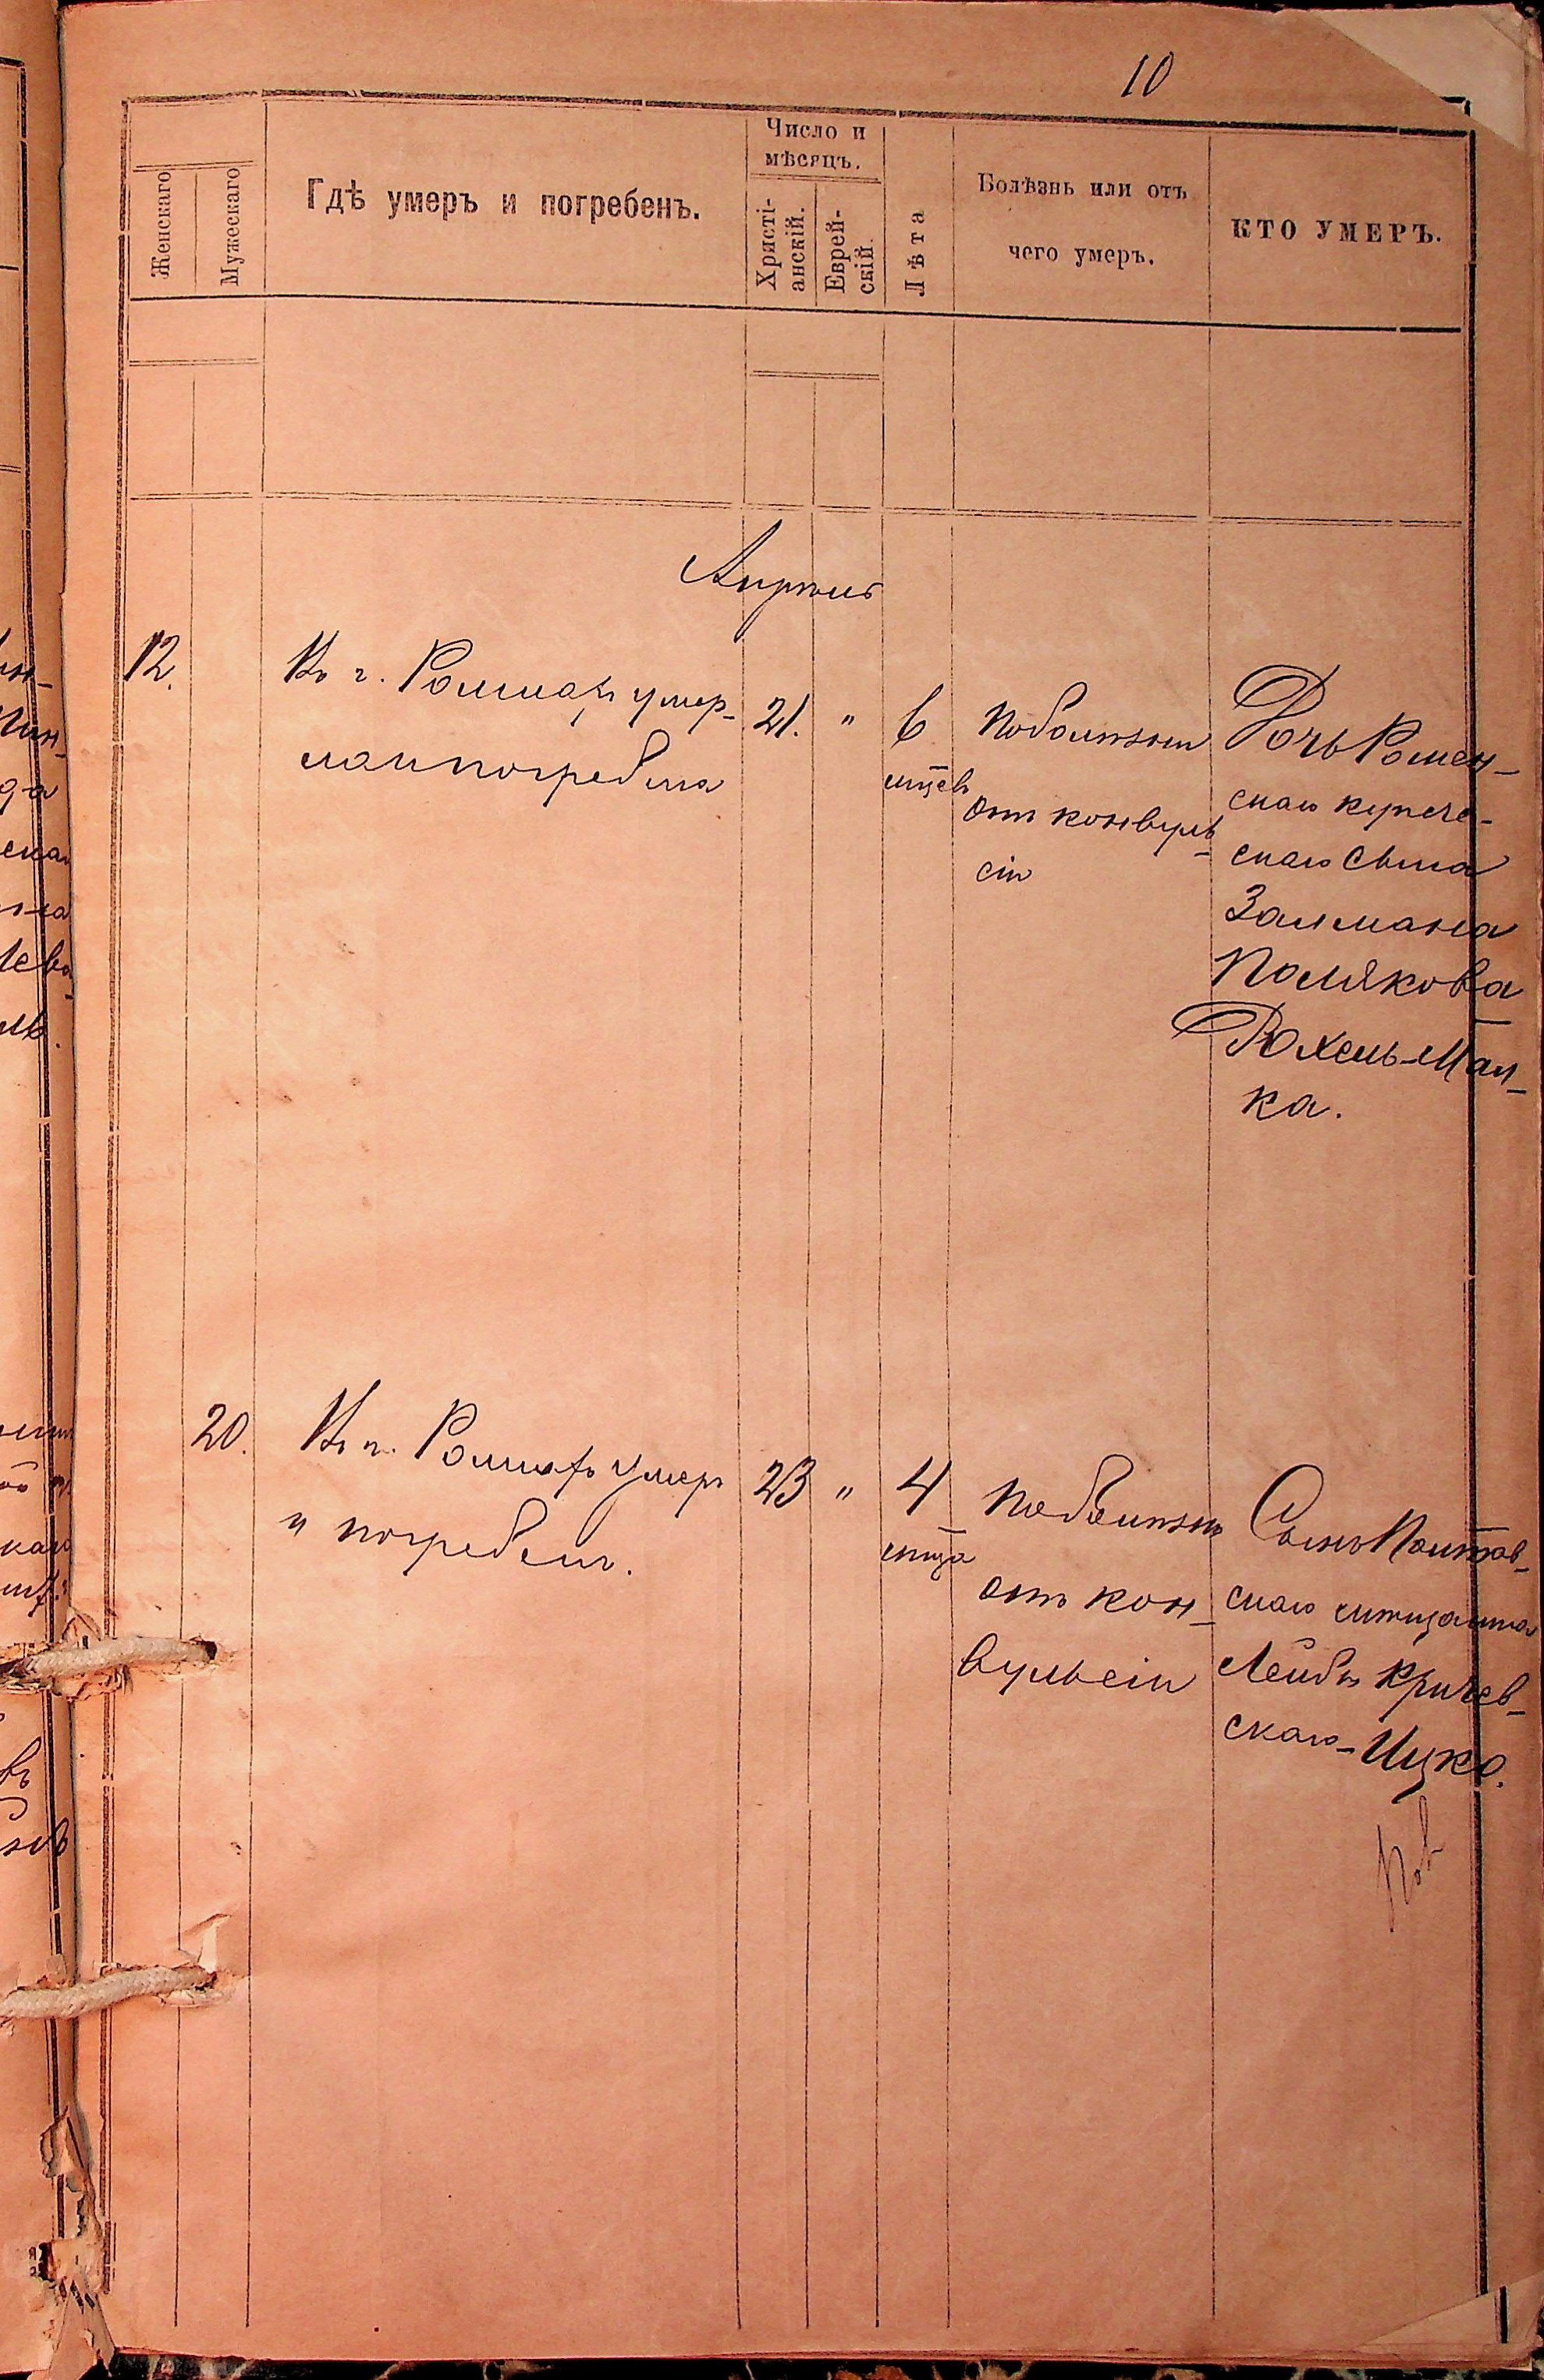 10
Женскаго
Мужескаго
Гдѣ умеръ и погребенъ.
Число и
мѣсяцъ.
Хрясті-
анскій.
Еврей-
скій.
Лѣта
Болѣзнь или отъ
чего умеръ.
КТО УМЕРЪ.
Апрѣль
12.
Въ г. Ромнахъ умер-
ла и погребена
21.
"
6
мцевъ
По болѣзни
отъ конвуль-
сіи
Дочь Ромен-
скаго купече-
скаго сына
Залмана
Полякова
Рохель-Мал-
ка.
20.
Въ г. Ромнахъ умеръ
и погребенъ.
23
"
4
мца
По болѣзни
отъ кон-
вульсіи
Сынъ Полтав-
скаго мѣщанина
Лейбы Кричев-
скаго-Ицко.